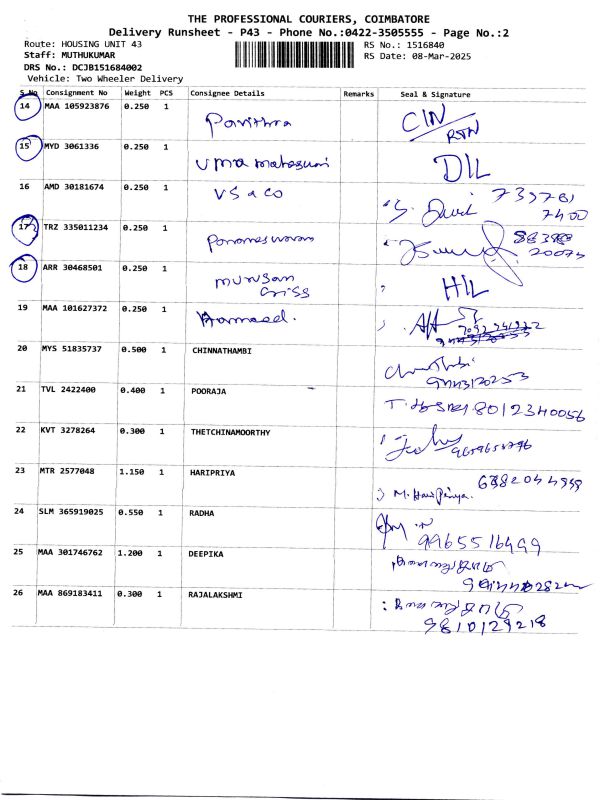 THE PROFESSIONAL COURIERS, COIMBATORE
Delivery Runsheet - P43 - Phone No.:0422-3505555 - Page No.:2
Route: HOUSING UNIT 43 RS No.: 1516840
Staff: MUTHUKUMAR RS Date: 08-Mar-2025
DRS No.: DCJB151684002
Vehicle: Two Wheeler Delivery
S.No Consignment No Weight PCS Consignee Details Remarks Seal & Signature
14 MAA 105923876 0.250 1 Pavithra CIN/RTN
15 MYD 3061336 0.250 1 Uma Maheswari DIL
16 AMD 30181674 0.250 1 VS a co S. David
17 TRZ 335011234 0.250 1 Parameswaran
18 ARR 30468501 0.250 1 Murugan HIL
19 MAA 101627372 0.250 1
20 MYS 51835737 0.500 1 CHINNATHAMBI
9443120253
21 TVL 2422400 0.400 1 POORAJA 8012340056
22 KVT 3278264 0.300 1 THETCHINAMOORTHY
23 MTR 2577048 1.150 1 HARIPRIYA M. Hari Priya.
24 SLM 365919025 0.550 1 RADHA
9965516499
25 MAA 301746762 1.200 1 DEEPIKA
26 MAA 869183411 0.300 1 RAJALAKSHMI
9810129218